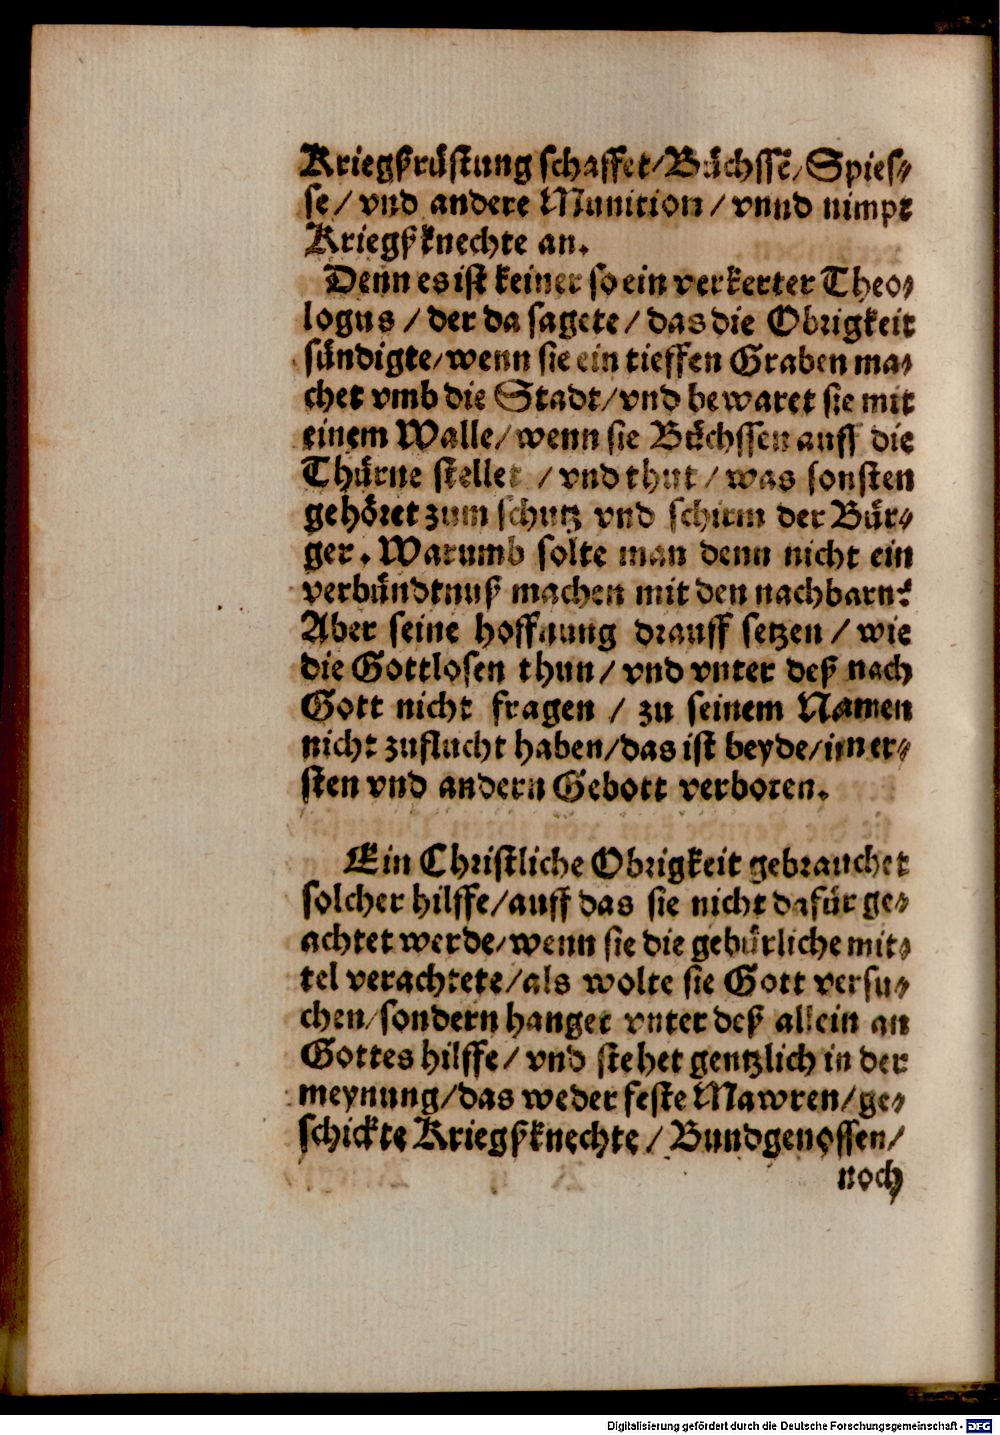 Kriegßrüſtung ſchaffet/Büchſſẽ/Spieſ⸗
ſe/ vnd andere Munition/ vnnd nimpt
Kriegßknechte an.
Denn es iſt keiner ſo ein verkerter Theo⸗
logus /der da ſagete/das die Obrigkeit
ſündigte/wenn ſie ein tieffen Graben ma⸗
chet vmb die Stadt/vnd bewaret ſie mit
einem Walle/wenn ſie Büchſſen auff die
Thürne ſtellet /vnd thut/ was ſonſten
gehöret zum ſchutz vnd ſchirm der Bür⸗
ger. Warumb ſolte man denn nicht ein
verbündtnuß machen mit den nachbarn?
Aber ſeine hoffnung drauff ſetzen/ wie
die Gottloſen thun/ vnd vnter deß nach
Gott nicht fragen / zu ſeinem Namen
nicht zuflucht haben/das iſt beyde/im er⸗
ſten vnd andern Gebott verboten.
Ein Chriſtliche Obrigkeit gebrauchet
ſolcher hilffe/auff das ſie nicht dafür ge⸗
achtet werde/wenn ſie die gebürliche mit⸗
tel verachtete/als wolte ſie Gott verſu⸗
chen/ſondern hanget vnter deß allein an
Gottes hilffe/ vnd ſtehet gentzlich in der
meynung/das weder feſte Mawren/ge⸗
ſchickte Kriegßknechte/ Bundgenoſſen/
noch
Digitalisierung gefördert durch die Deutsche Forschungsgemeinschaft - DFG